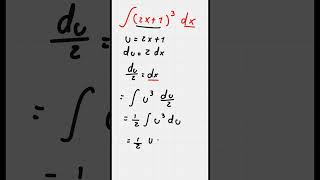 ∫(2x+1)³ dx
u = 2x+1
du = 2 dx
du/2 = dx
= ∫ u³ du/2
= 1/2 ∫ u³ du
= 1/2 u